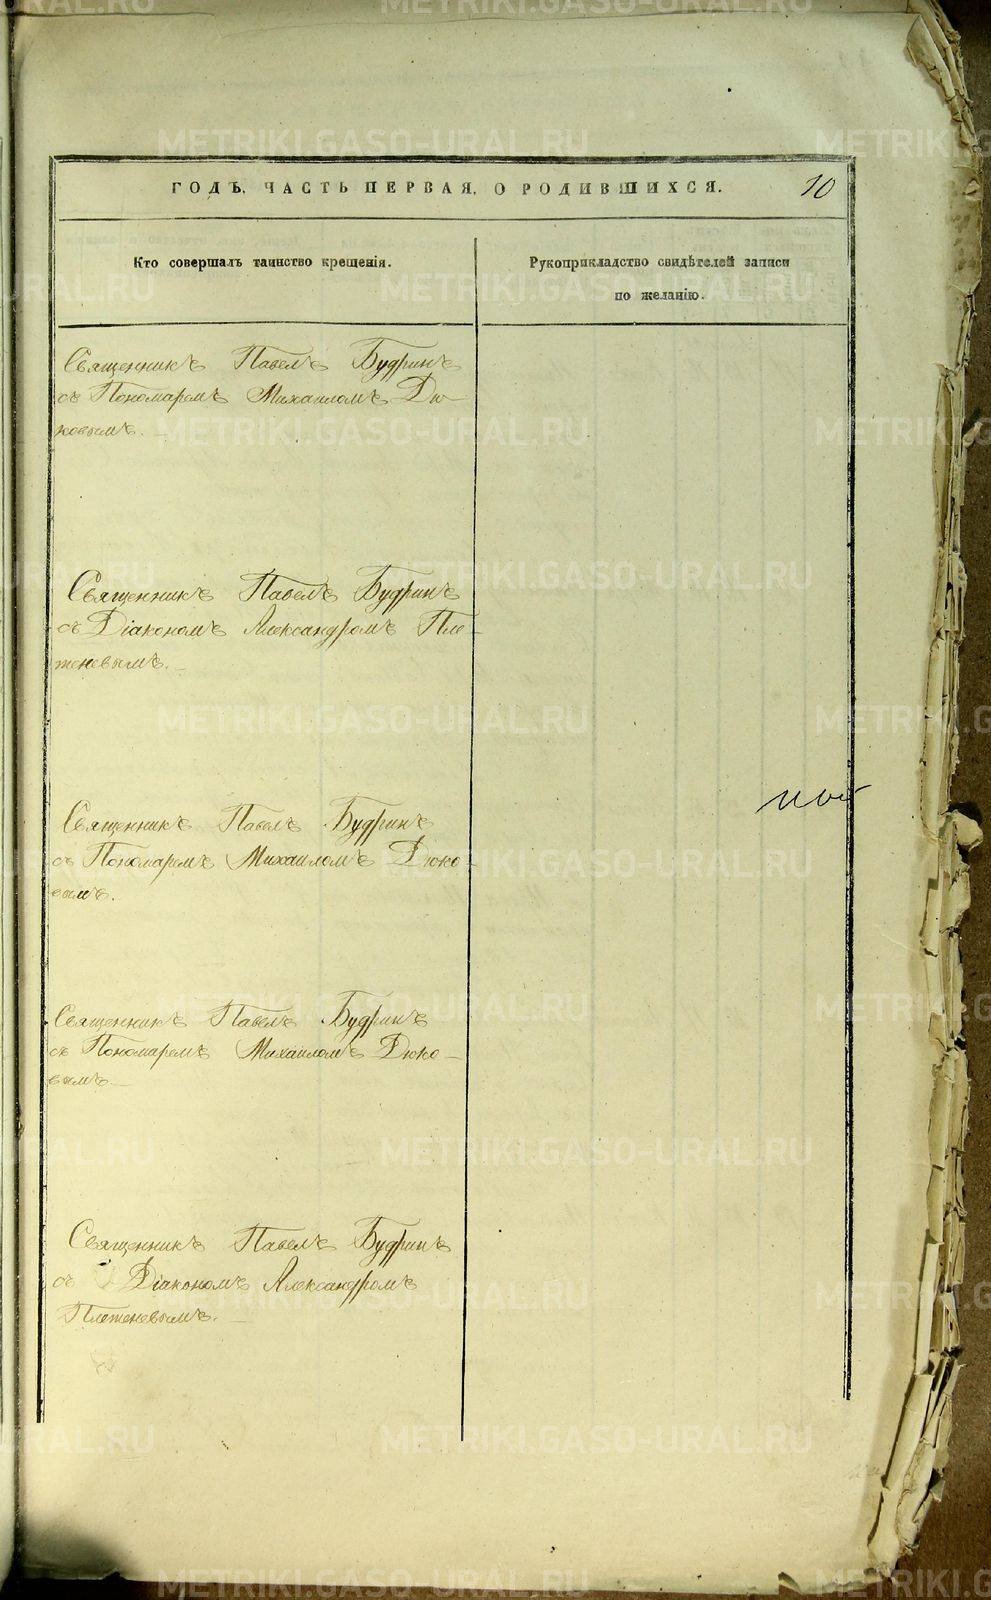 ГОДЪ. ЧАСТЬ ПЕРВАЯ. О РОДИВШИХСЯ. 10
Кто совершалъ таинство крещенія.
Рукоприкладство свидѣтелей записи
по желанію.
Священникъ Павелъ Будринъ
съ Пономаремъ Михаиломъ Дю-
ковымъ.
Священникъ Павелъ Будринъ
съ Діакономъ Александромъ Пле-
теневымъ.
Священникъ Павелъ Будринъ
съ Пономаремъ Михаиломъ Дюко-
вымъ.
Священникъ Павелъ Будринъ
съ Пономаремъ Михаиломъ Дюко-
вымъ
Священникъ Павелъ Будринъ
съ Діакономъ Александромъ
Плетеневымъ.
METRIKI.GASO-URAL.RU